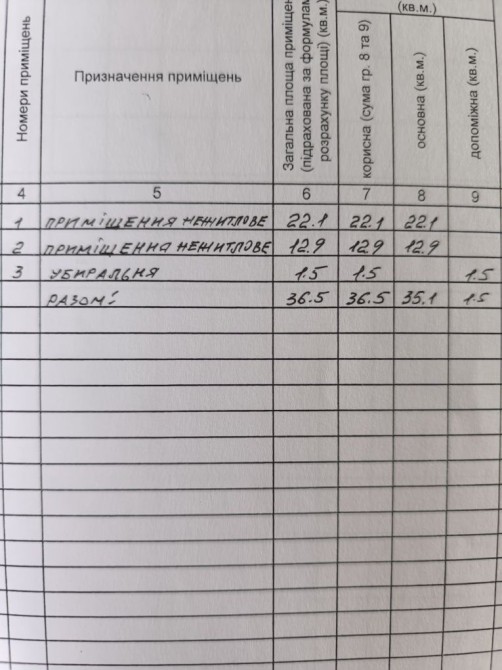 (кв.м.)
Номери приміщень
Призначення приміщень
Загальна площа приміщен
(підрахована за формулам
розрахунку площі) (кв.м.)
корисна (сума гр. 8 та 9)
основна (кв.м.)
допоміжна (кв.м.)
4 5 6 7 8 9
1 ПРИМІЩЕННЯ НЕЖИТЛОВЕ 22.1 22.1 22.1
2 ПРИМІЩЕННЯ НЕЖИТЛОВЕ 12.9 12.9 12.9
3 УБИРАЛЬНЯ 1.5 1.5 1.5
РАЗОМ: 36.5 36.5 35.1 1.5